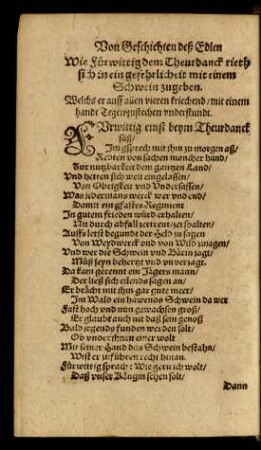 Von Geschichten deß Edlen
Wie Fürwittig dem Theurdanck rieth
sich in ein gefehrlichkeit mit einem
Schwein zugeben.
Welchs er auff allen vieren kriechend / mit einem
handt Degen zustechen understundt.
Fürwittig einst beym Theurdanck
saß /
Im gsprech mit ihm zu morgen aß /
Redten von sachen mancher hand /
Zur nutzbarkeit dem gantzen Land /
Und hetten sich weit eingelassen /
Von Obrigkeit und Undersassen /
Was jedermans werck wer und end /
Damit ein gfaßtes Regiment
In gutem frieden würd erhalten /
Nit durch abfall zertrent / zerspalten /
Auffs letst begundt der Held zu sagen
Von Weydwerck und von Wild jnagen /
Und wer die Schwein und Bärin jagt /
Müß seyn behertzt und unverzagt.
Da kam gerennt ein Jägers mann /
Der ließ sich eilends sagen an /
Er brächt mit ihm gar gute meer /
Im Wald ein hawends Schwein da wer
Fast hoch und nun gewachsen groß /
Er glaubt auch nit daß sein genoß
Bald irgends funden werden solt /
Ob under ihnen einer wolt
Mit seiner Hand das Schwein bestahn /
Wißt er zuführen recht hinan.
Fürwittig sprach : Wie gern ich wolt /
Daß unser Königin sehen solt /
Dann